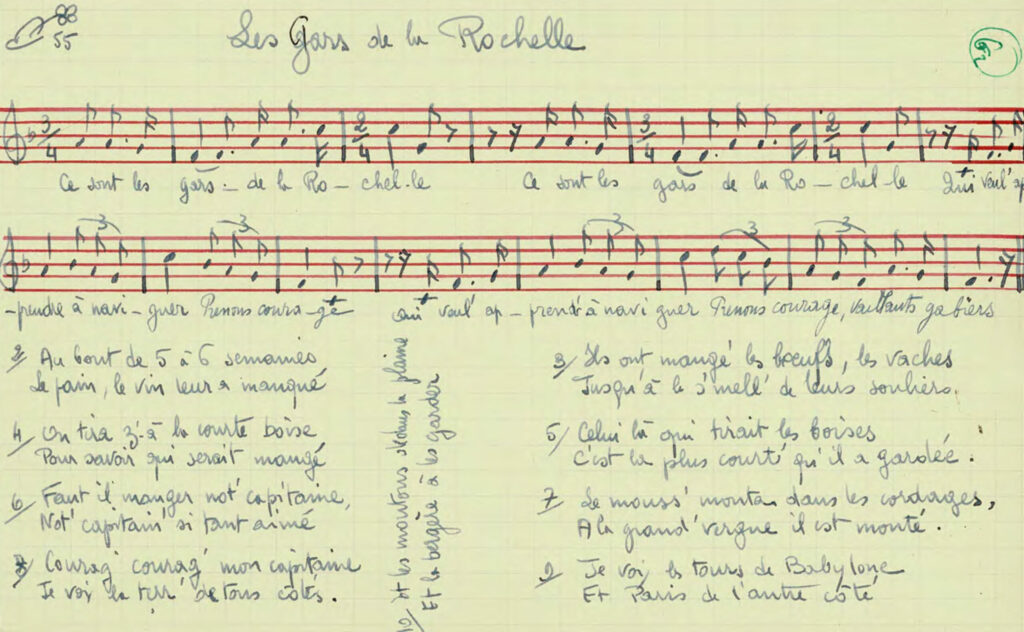 88
55
Les Gars de la Rochelle
3/4 2/4 3/4 2/4
Ce sont les gars - de la Ro - chel-le Ce sont les gars de la Ro - chel-le Qui veul' ap
3 3 3 3 3
-prendre à navi - guer Prenons coura-ge qui veul' ap - prendr' à navi guer Prenons courage, vaillants gabiers
2/ Au bout de 5 à 6 semaines
Le pain, le vin leur a manqué
3/ Ils ont mangé les boeufs, les vaches
Jusqu'à le s'mell' de leurs souliers.
4/ On tira z'-à la courte boise
Pour savoir qui serait mangé
5/ Celui là qui tirait les boises
C'est la plus courte qu'il a gardée.
6/ Faut il manger not' capitaine,
Not' capitain' si tant aimé
7/ Le mouss' monta dans les cordages,
A la grand' vergue il est monté.
8/ Courag' courag' mon capitaine
Je voy la terr' de tous côtés.
9/ Je voy les tours de Babylone
Et Paris de l'autre côté
10/ Et les moutons dedans la plaine
Et la bergère à les garder